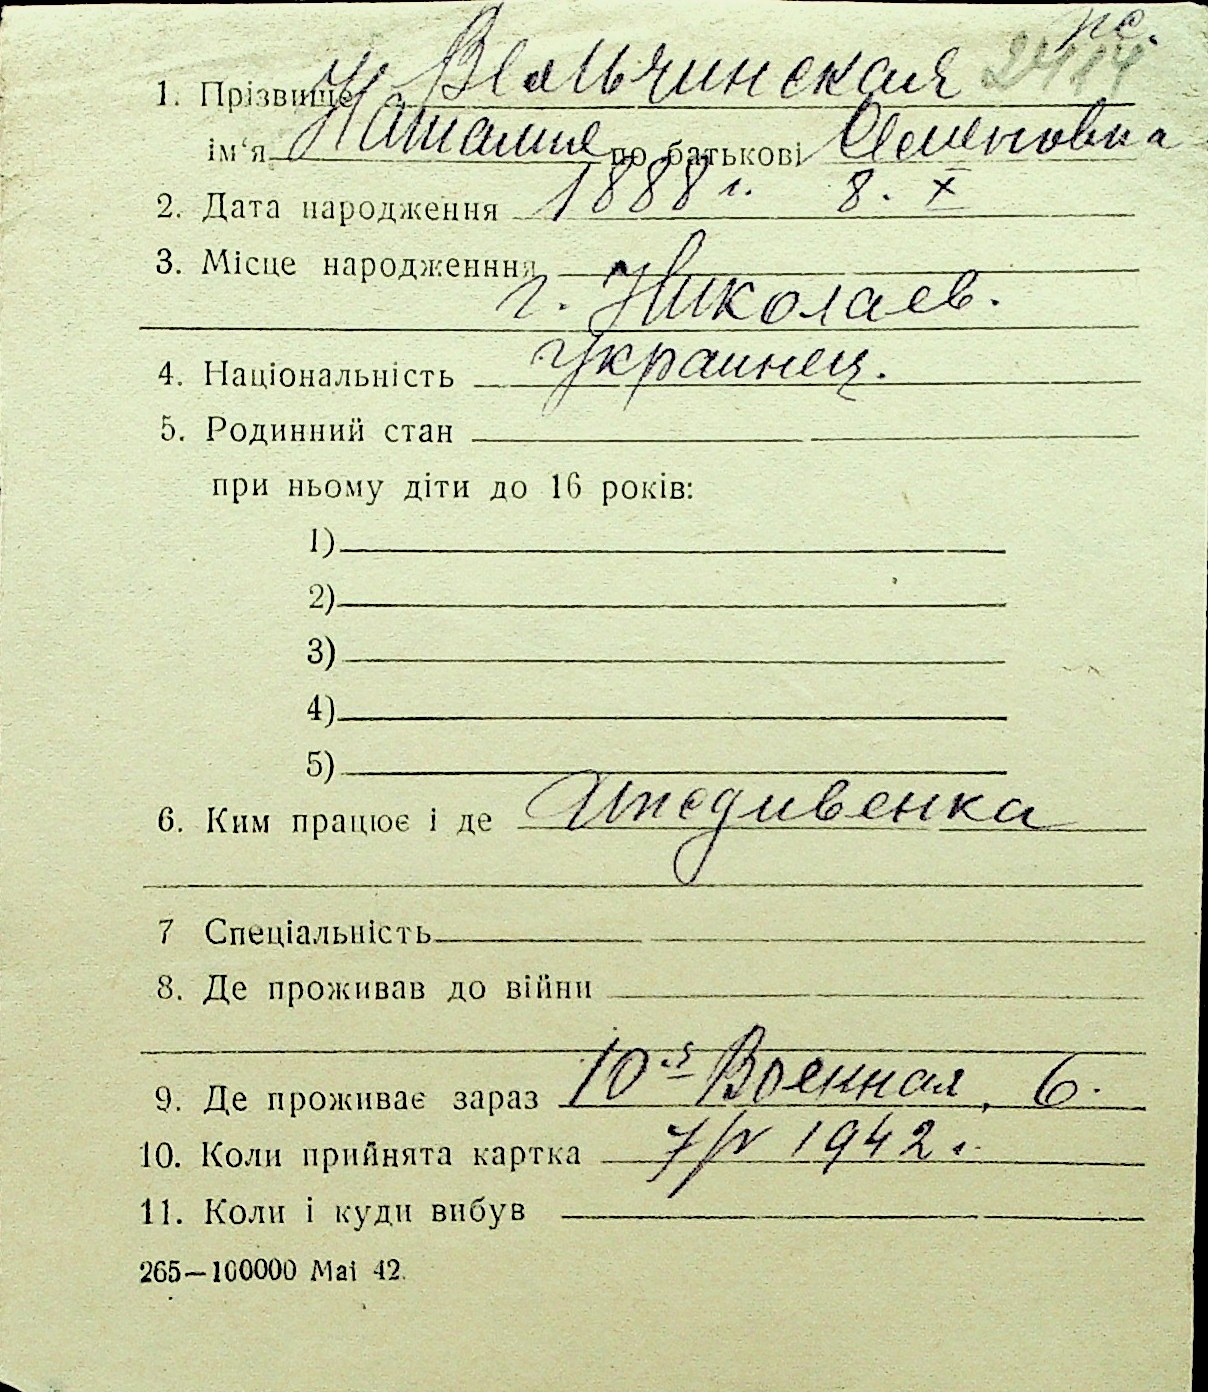 пе.
1. Прізвище Вельчинская 2414
ім'я Наталия по батькові Семеновна
2. Дата народження 1888 г. 8. X
3. Місце народженння
г. Николаев.
4. Національність украинец.
5. Родинний стан
при ньому діти до 16 років:
1)
2)
3)
4)
5)
6. Ким працює і де Иждивенка
7 Спеціальність
8. Де проживав до війни
9. Де проживає зараз 10-я Военная, 6.
10. Коли прийнята картка 7/V 1942 г.
11. Коли і куди вибув
265—100000 Mai 42.